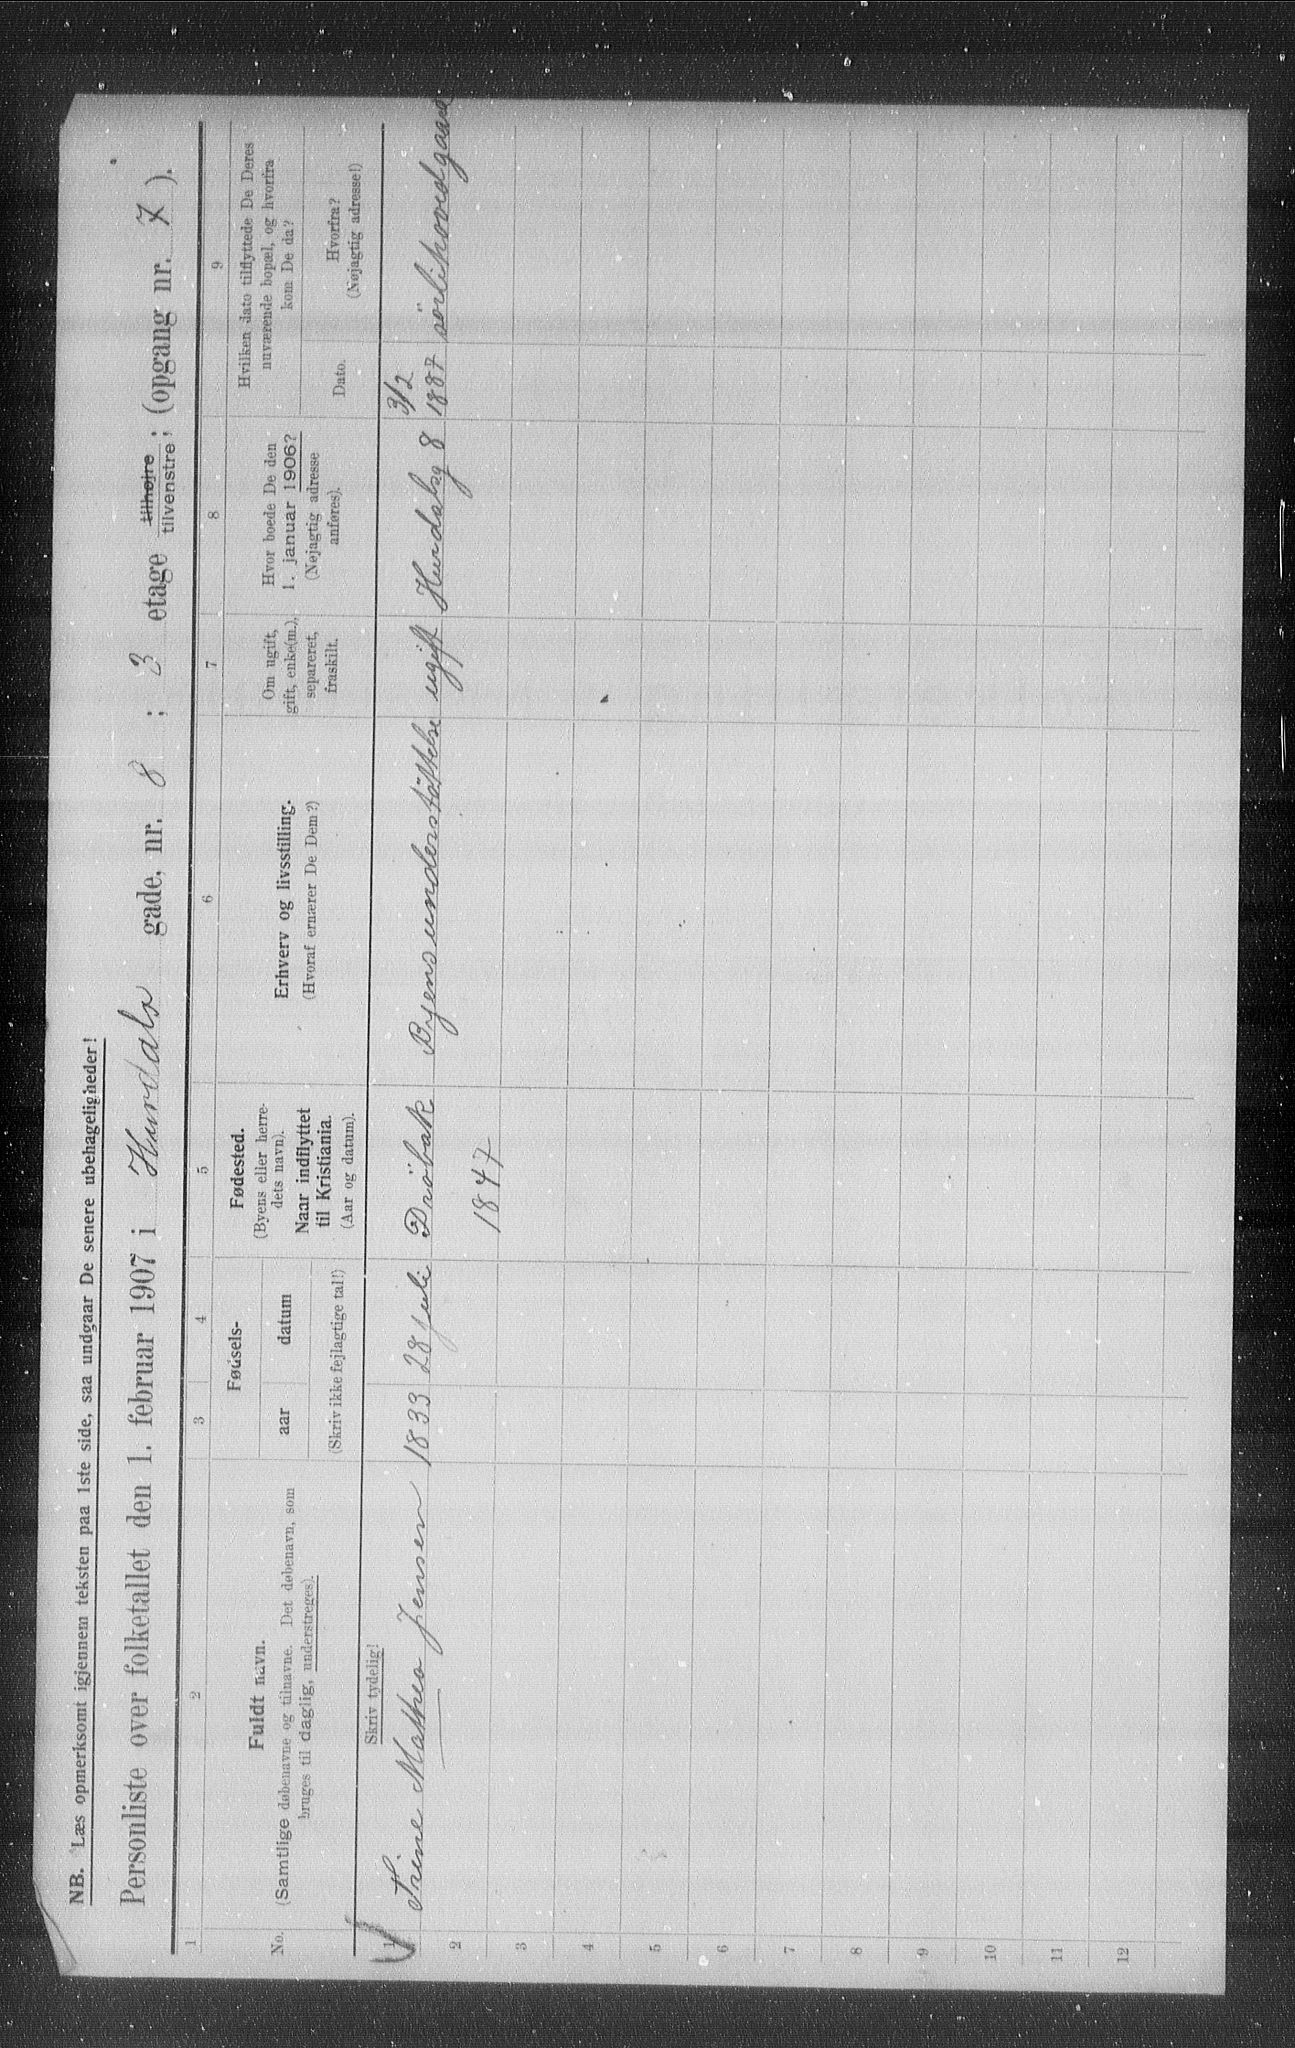 NB. Læs opmerksomt igjennem teksten paa 1ste side, saa undgaar De senere ubehageligheder!
Personliste over folketallet den 1. februar 1907 i Hurdals gade, nr. 8 ; 3 etage tilhøjre tilvenstre ; (opgang nr. 7 ).
1 2 3 4 5 6 7 8 9
No.
Fuldt navn.
(Samtlige døbenavne og tilnavne. Det døbenavn, som
bruges til daglig, understreges).
Skriv tydelig!
Fødsels-
aar datum
(Skriv ikke fejlagtige tal!)
Fødested.
(Byens eller herre-
dets navn).
Naar indflyttet
til Kristiania.
(Aar og datum).
Erhverv og livsstilling.
(Hvoraf ernærer De Dem?)
Om ugift,
gift, enke(m.),
separeret,
fraskilt.
Hvor boede De den
1. januar 1906?
(Nøjagtig adresse
anføres).
Hvilken dato tilflyttede De Deres
nuværende bopæl, og hvorfra
kom De da?
Dato.
Hvorfra?
(Nøjagtig adresse!)
1 Mathea Jensen 1833 28 juli Dröbak Byens understöttelse ugift Hurdalsg 8 3/2 1887 sörlihovedgaard
2 1847
3
4
5
6
7
8
9
10
11
12